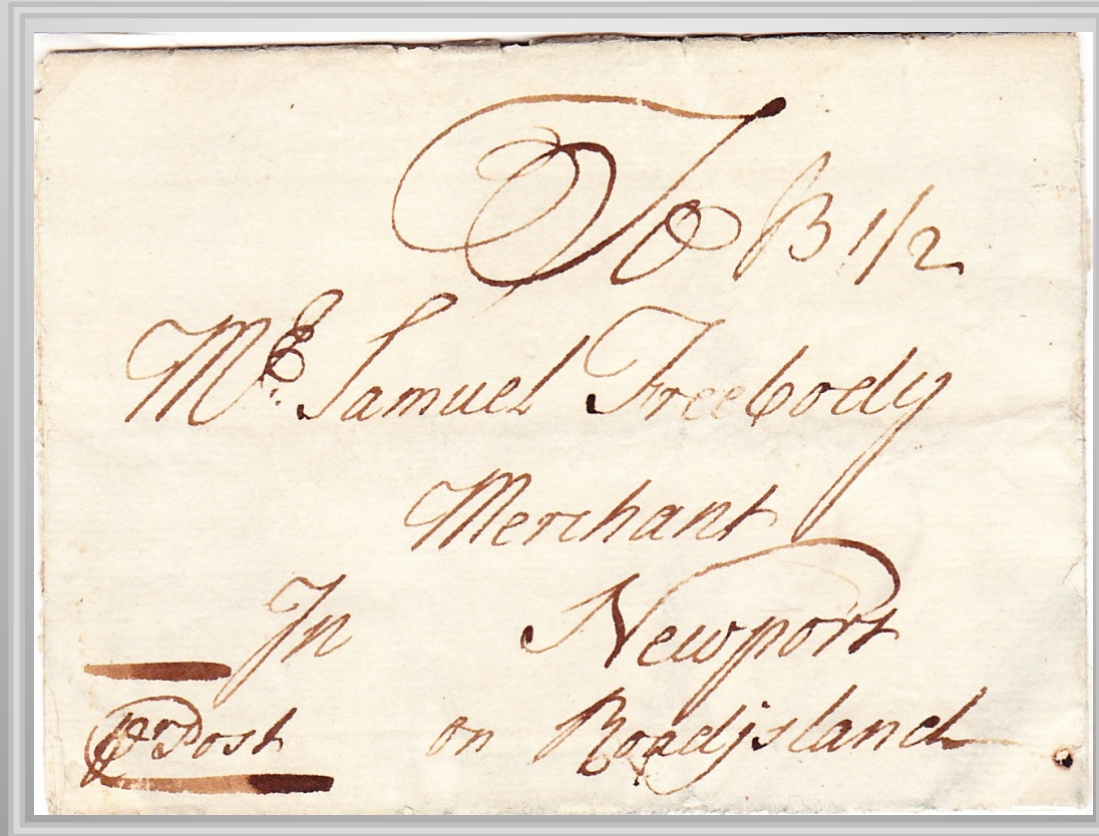 To B 1/2
Mr. Samuel Freebody
Merchant
In Newport
pr Post on Roadjsland